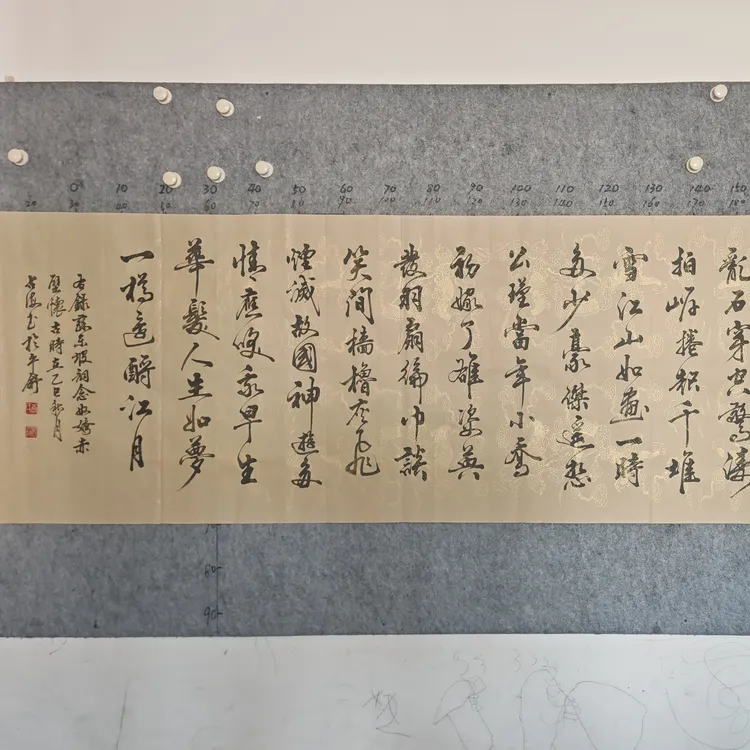 0 10 20 30 40 50 60 70 80 90 100 110 120 130 140 150
20 30 40 50 60 70 80 90 100 110 120 130 140 150 160 170 180
亂石穿空驚濤
拍岸捲起千堆
雪江山如畫一時
多少豪傑遥想
公瑾當年小喬
初嫁了雄姿英
發羽扇綸巾談
笑間檣櫓灰飛
煙滅故國神遊多
情應笑我早生
華髮人生如夢
一樽還酹江月
右録蘇東坡詞念奴嬌赤
壁懷古時在乙巳秋月
书於平舒
80
90